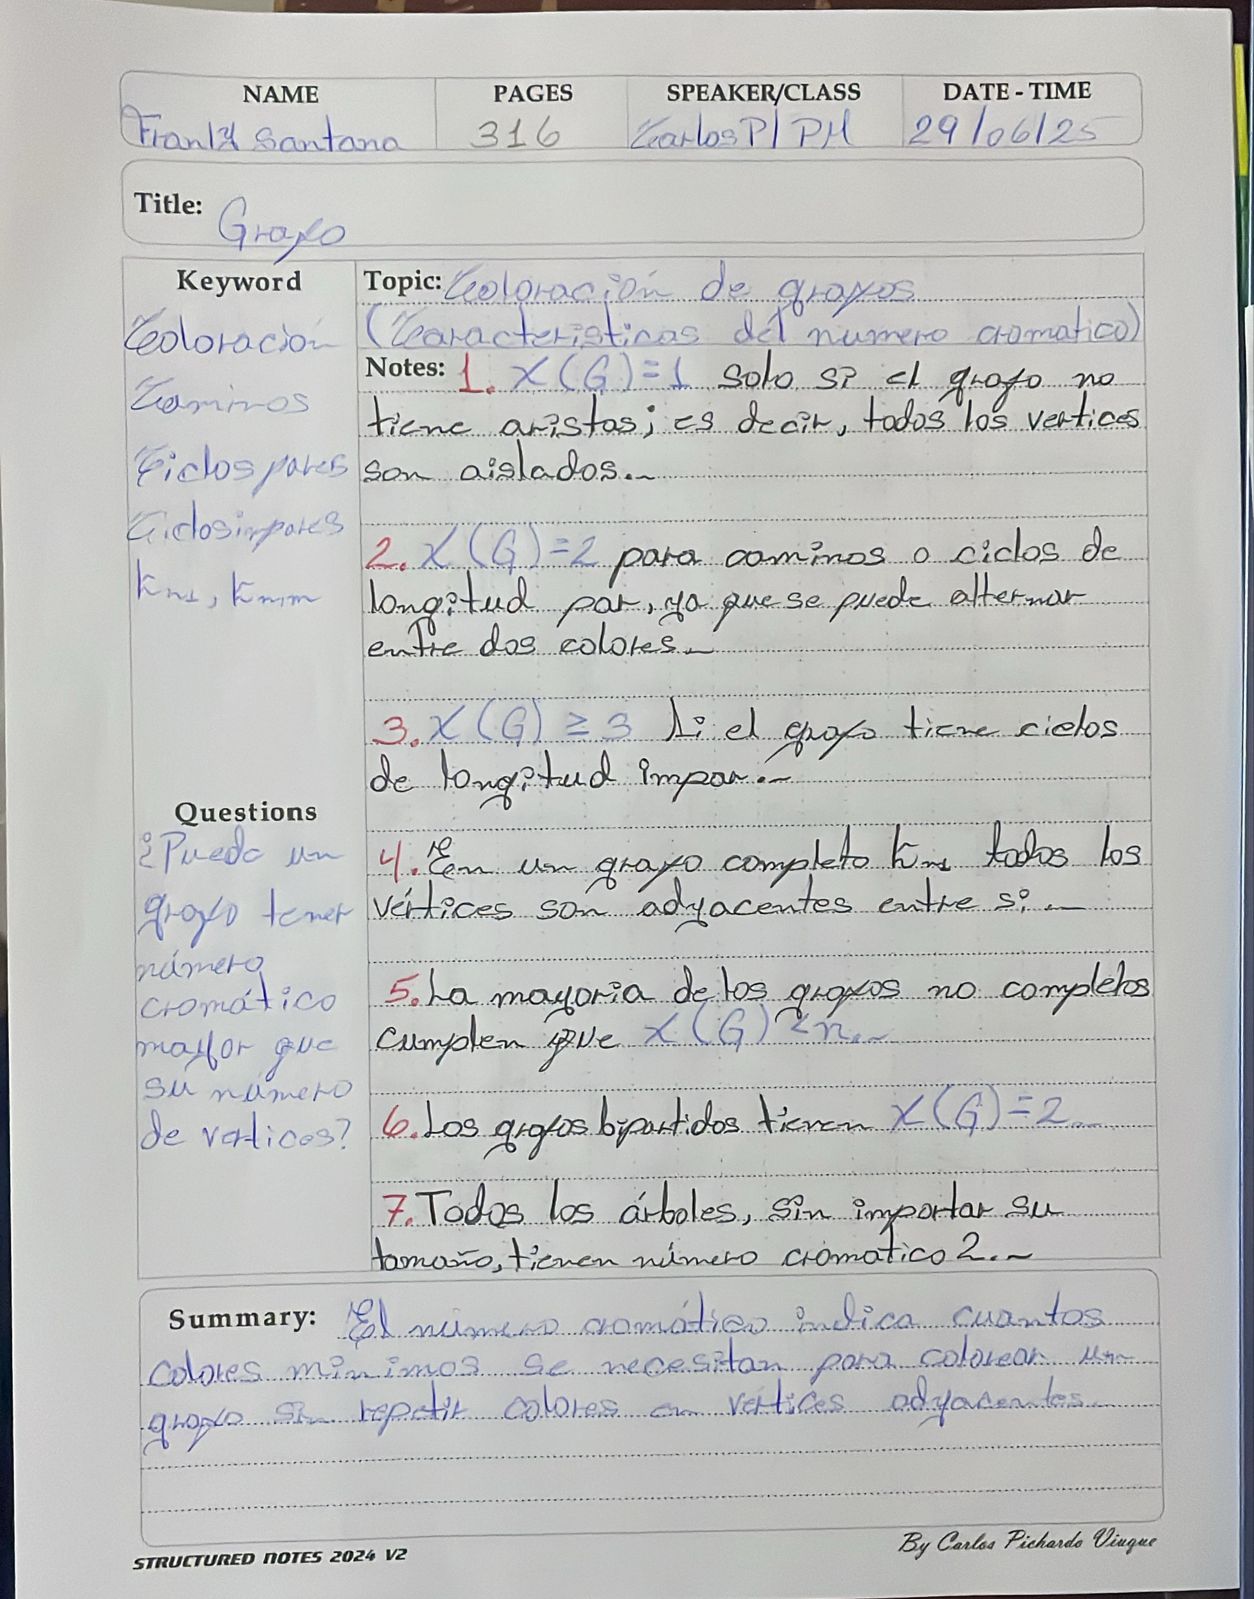 NAME PAGES SPEAKER/CLASS DATE - TIME
Frankly Santana 316 Carlos P/ PM 29/06/25
Title: Grafo
Keyword
Coloración
Caminos
Ciclos pares
Ciclos impares
Kn, Kn,m
Questions
¿Puede un
grafo tener
número
cromático
mayor que
su número
de vertices?
Topic: Coloración de grafos
(Características del numero cromatico)
Notes: 1. X(G)=1 solo si el grafo no
tiene aristas; es decir, todos los vertices
son aislados.
2. X(G)=2 para caminos o ciclos de
longitud par, ya que se puede alternar
entre dos colores.
3. X(G) ≥ 3 si el grafo tiene ciclos
de longitud impar.
4. En un grafo completo Kn, todos los
vértices son adyacentes entre si.
5. La mayoria de los grafos no completos
cumplen que X(G) < n.
6. Los grafos bipartidos tienen X(G)=2
7. Todos los árboles, sin importar su
tamaño, tienen número cromatico 2.
Summary: El número cromático indica cuantos
colores minimos se necesitan para colorear un
grafo sin repetir colores en vértices adyacentes.
STRUCTURED NOTES 2024 V2
By Carlos Pichardo Viuque